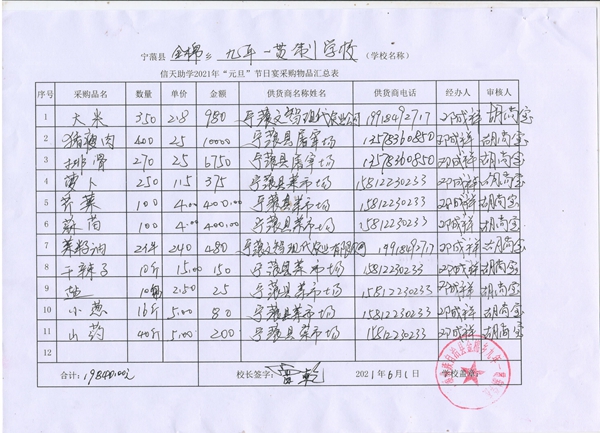 宁蒗县 金棉 乡 九年一贯制学校 （学校名称）
信天助学2021年“元旦”节日宴采购物品汇总表
序号 采购品名 数量 单价 金额 供货商名称姓名 供货商电话 经办人 审核人
1 大米 350 2.8 980 宁蒗 现代农业 邓成祥 胡尚宝
2 猪肉 400 25 10000 宁蒗县屠宰场 13578360850 邓成祥 胡尚宝
3 排骨 270 25 6750 宁蒗县屠宰场 13578360850 邓成祥 胡尚宝
4 萝卜 250 1.5 375 宁蒗县菜市场 15812230233 邓成祥 胡尚宝
5 芹菜 100 4.00 400.00 宁蒗县菜市场 15812230233 邓成祥 胡尚宝
6 蒜苗 100 4.00 400.00 宁蒗县菜市场 15812230233 邓成祥 胡尚宝
7 菜籽油 2件 240 480 宁蒗 现代农业有限 邓成祥 胡尚宝
8 干辣子 10斤 15.00 150 宁蒗县菜市场 15812230233 邓成祥 胡尚宝
9 盐 10 2.50 25 宁蒗县菜市场 15812230233 邓成祥 胡尚宝
10 小葱 16斤 5.00 80 宁蒗县菜市场 15812230233 邓成祥 胡尚宝
11 山药 40斤 5.00 200 宁蒗县菜市场 15812230233 邓成祥 胡尚宝
12
合计：19840.00元 校长签字： 2021年6月1日 学校盖章：